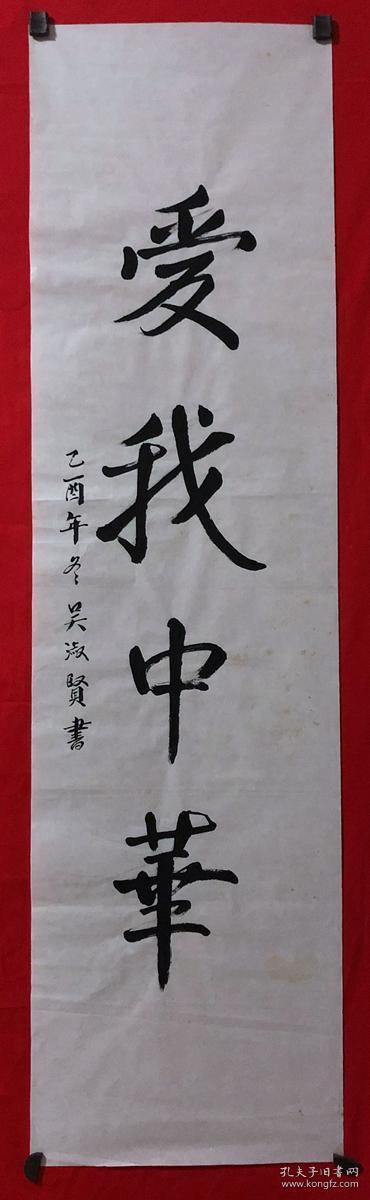 愛我中華
乙酉年冬吴淑賢書
孔夫子旧书网
www.kongfz.com